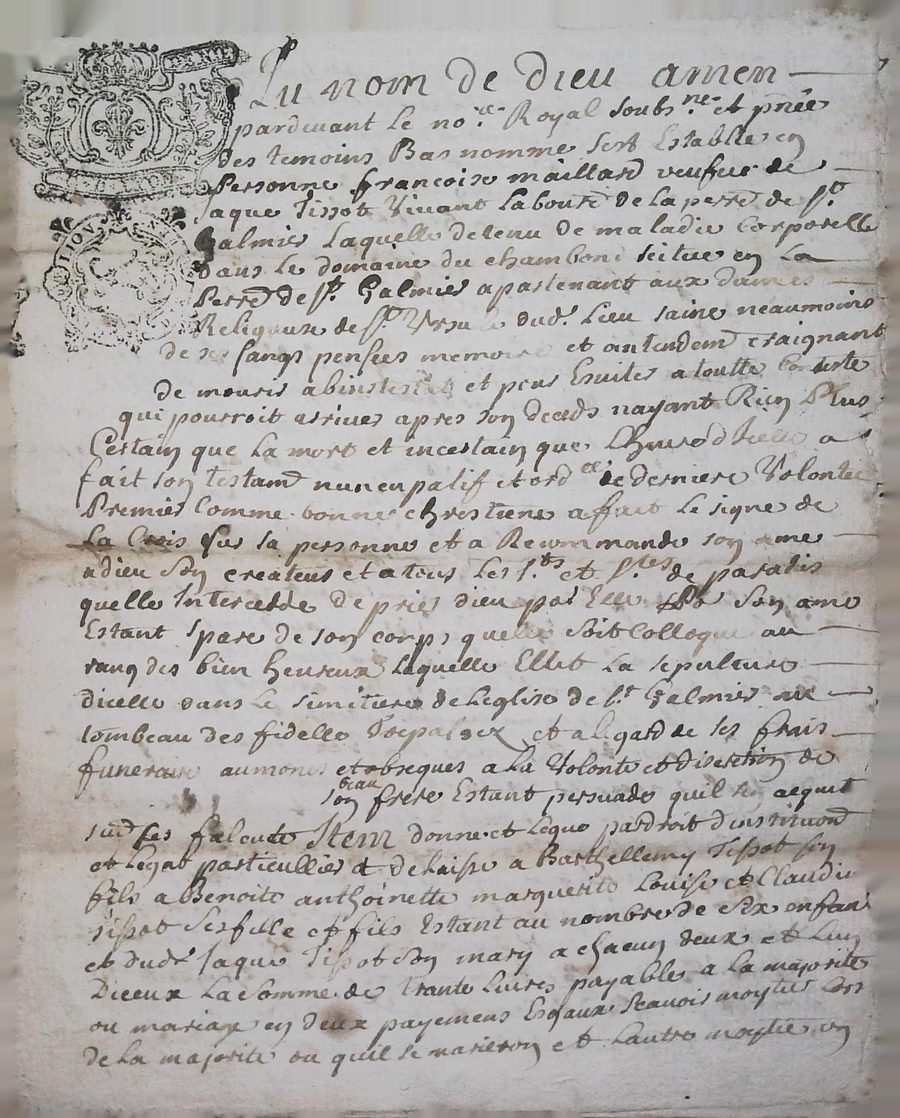 Au nom de dieu amen
pardevant le no.re Royal soubs.ne et pnée
des temoins Bas nomme sert Establie en
Personne francoise maillard veufue de
Jaque Tissot Vivant Laboure de la perre de St
Galmier Laquelle detenu de maladie Corporelle
dans le domaine du chambond scitue en La
Perre de St Galmier apartenant aux dames
Religeuse de St Ursule dud. Lieu saine neaumoins
de ses sangs pensees memoire et antendem craignant
de mourir abinstestat et pour Esuiter a toutte Conteste
qui pourroit arriver apres son deceds nayant Rien Plus
Certain que La mort et incertain que Lheure dicelle a
fait son testamt nuncupatif et ord.ce de derniere Volontee
Premier Comme bonne chrestiene a fait Le signe de
La Crois sur sa personne et a Recommande son ame
a dieu son createur et a tous Les S.ts et S.tes de paradis
quelle Intercedde de prier dieu por Elle son ame
Estant spare de son corps quelle soit Colloque au
rang des bien heureux Laquelle Ellet La sepulture
dicelle dans Le simitiere de Leglise de St Galmier au
tombeau des fidelle Trepasez et alegard de ses frais
funeraire aumones et obseques a La Volonte et discretion de
beau
son frere Estant persuade quil sen aequit
suid ses falcute Item donne et Legue pardroit dinstitution
et Legat particullier et delaisse a Barthellemy Tissot son
fils a Benoite anthoinette marguerite Louise et Claudie
Tissot ses fille et fils Estant au nombre de six enfans
et dudt Jaque Tissot son mary a chacun deux et Lun
Diceux La somme de trante Livres payable a La majorite
ou mariage en deux payemens Esgaux scavoir moytie Lors
de La majorite ou quil se marieron et Lautre moytie en